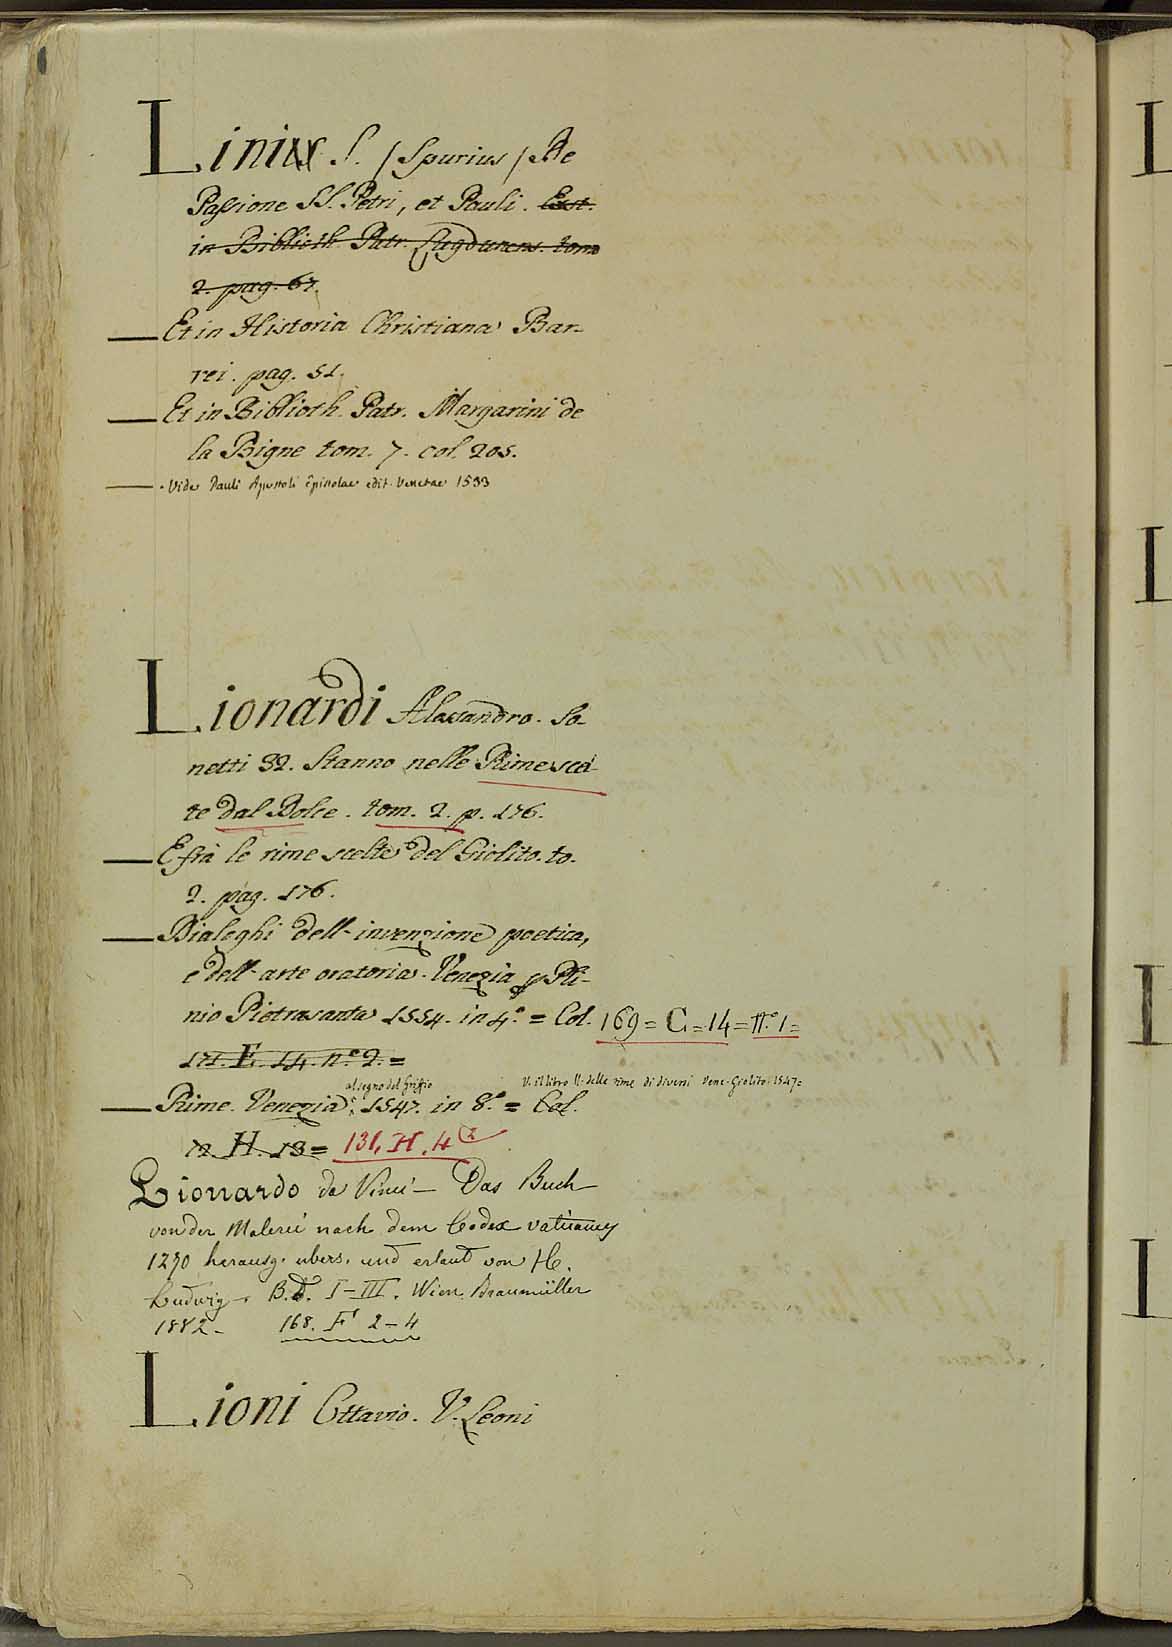 Linus S. /Spurius/ De
Passione SS. Petri, et Pauli. Exst.
in Biblioth. Patr. Lugdunens. tom
2. pag. 67.
— Et in Historia Christiana Bar-
rei. pag. 51.
— Et in Biblioth. Patr. Margarini de
la Bigne tom. 7. col. 205.
— Vide Pauli Apostoli Epistolae edit. Venetae 1533
Lionardi Alessandro. So-
netti 32. Stanno nelle Rime scel-
te dal Dolce. tom. 2. p. 176.
— E frà le rime scelte del Giolito. to.
2. pag. 176.
— Dialoghi dell'invenzione poetica,
e dell'arte oratoria. Venezia p Pli-
nio Pietrasanta 1554. in 4.° = Col. 169 = C = 14 = N.° 1 =
171. E. 14. n.° 2. =
al segno del Griffio V. il libro II. delle rime di diversi Vene. Giolito. 1547 =
— Rime. Venezia 1547. in 8.° = Col.
72. H. 13 = 131. H. 42
Lionardo da Vinci — Das Buch
von der Malerei nach dem Codex Vaticanus
1270 herausg. ubers. und erlaut von H.
Ludwig. B.d. I–III. Wien. Braumüller
1882 – 168. F 2–4
Lioni Ottavio. V. Leoni